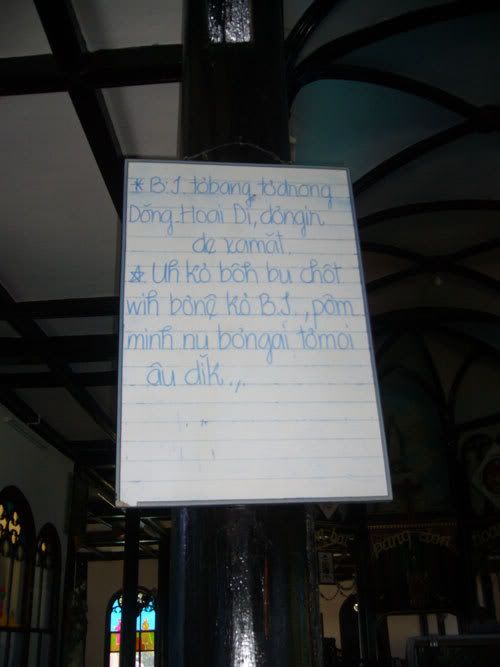 * B.J. tơbang tơdrong
Dŏng Hoai Di, dơngin
de xamăt.
* Uh kơ bôh bu chôt
wih bơnê kơ B.J., pôm
minh nu bơngai tơmoi
âu dĭk.,.